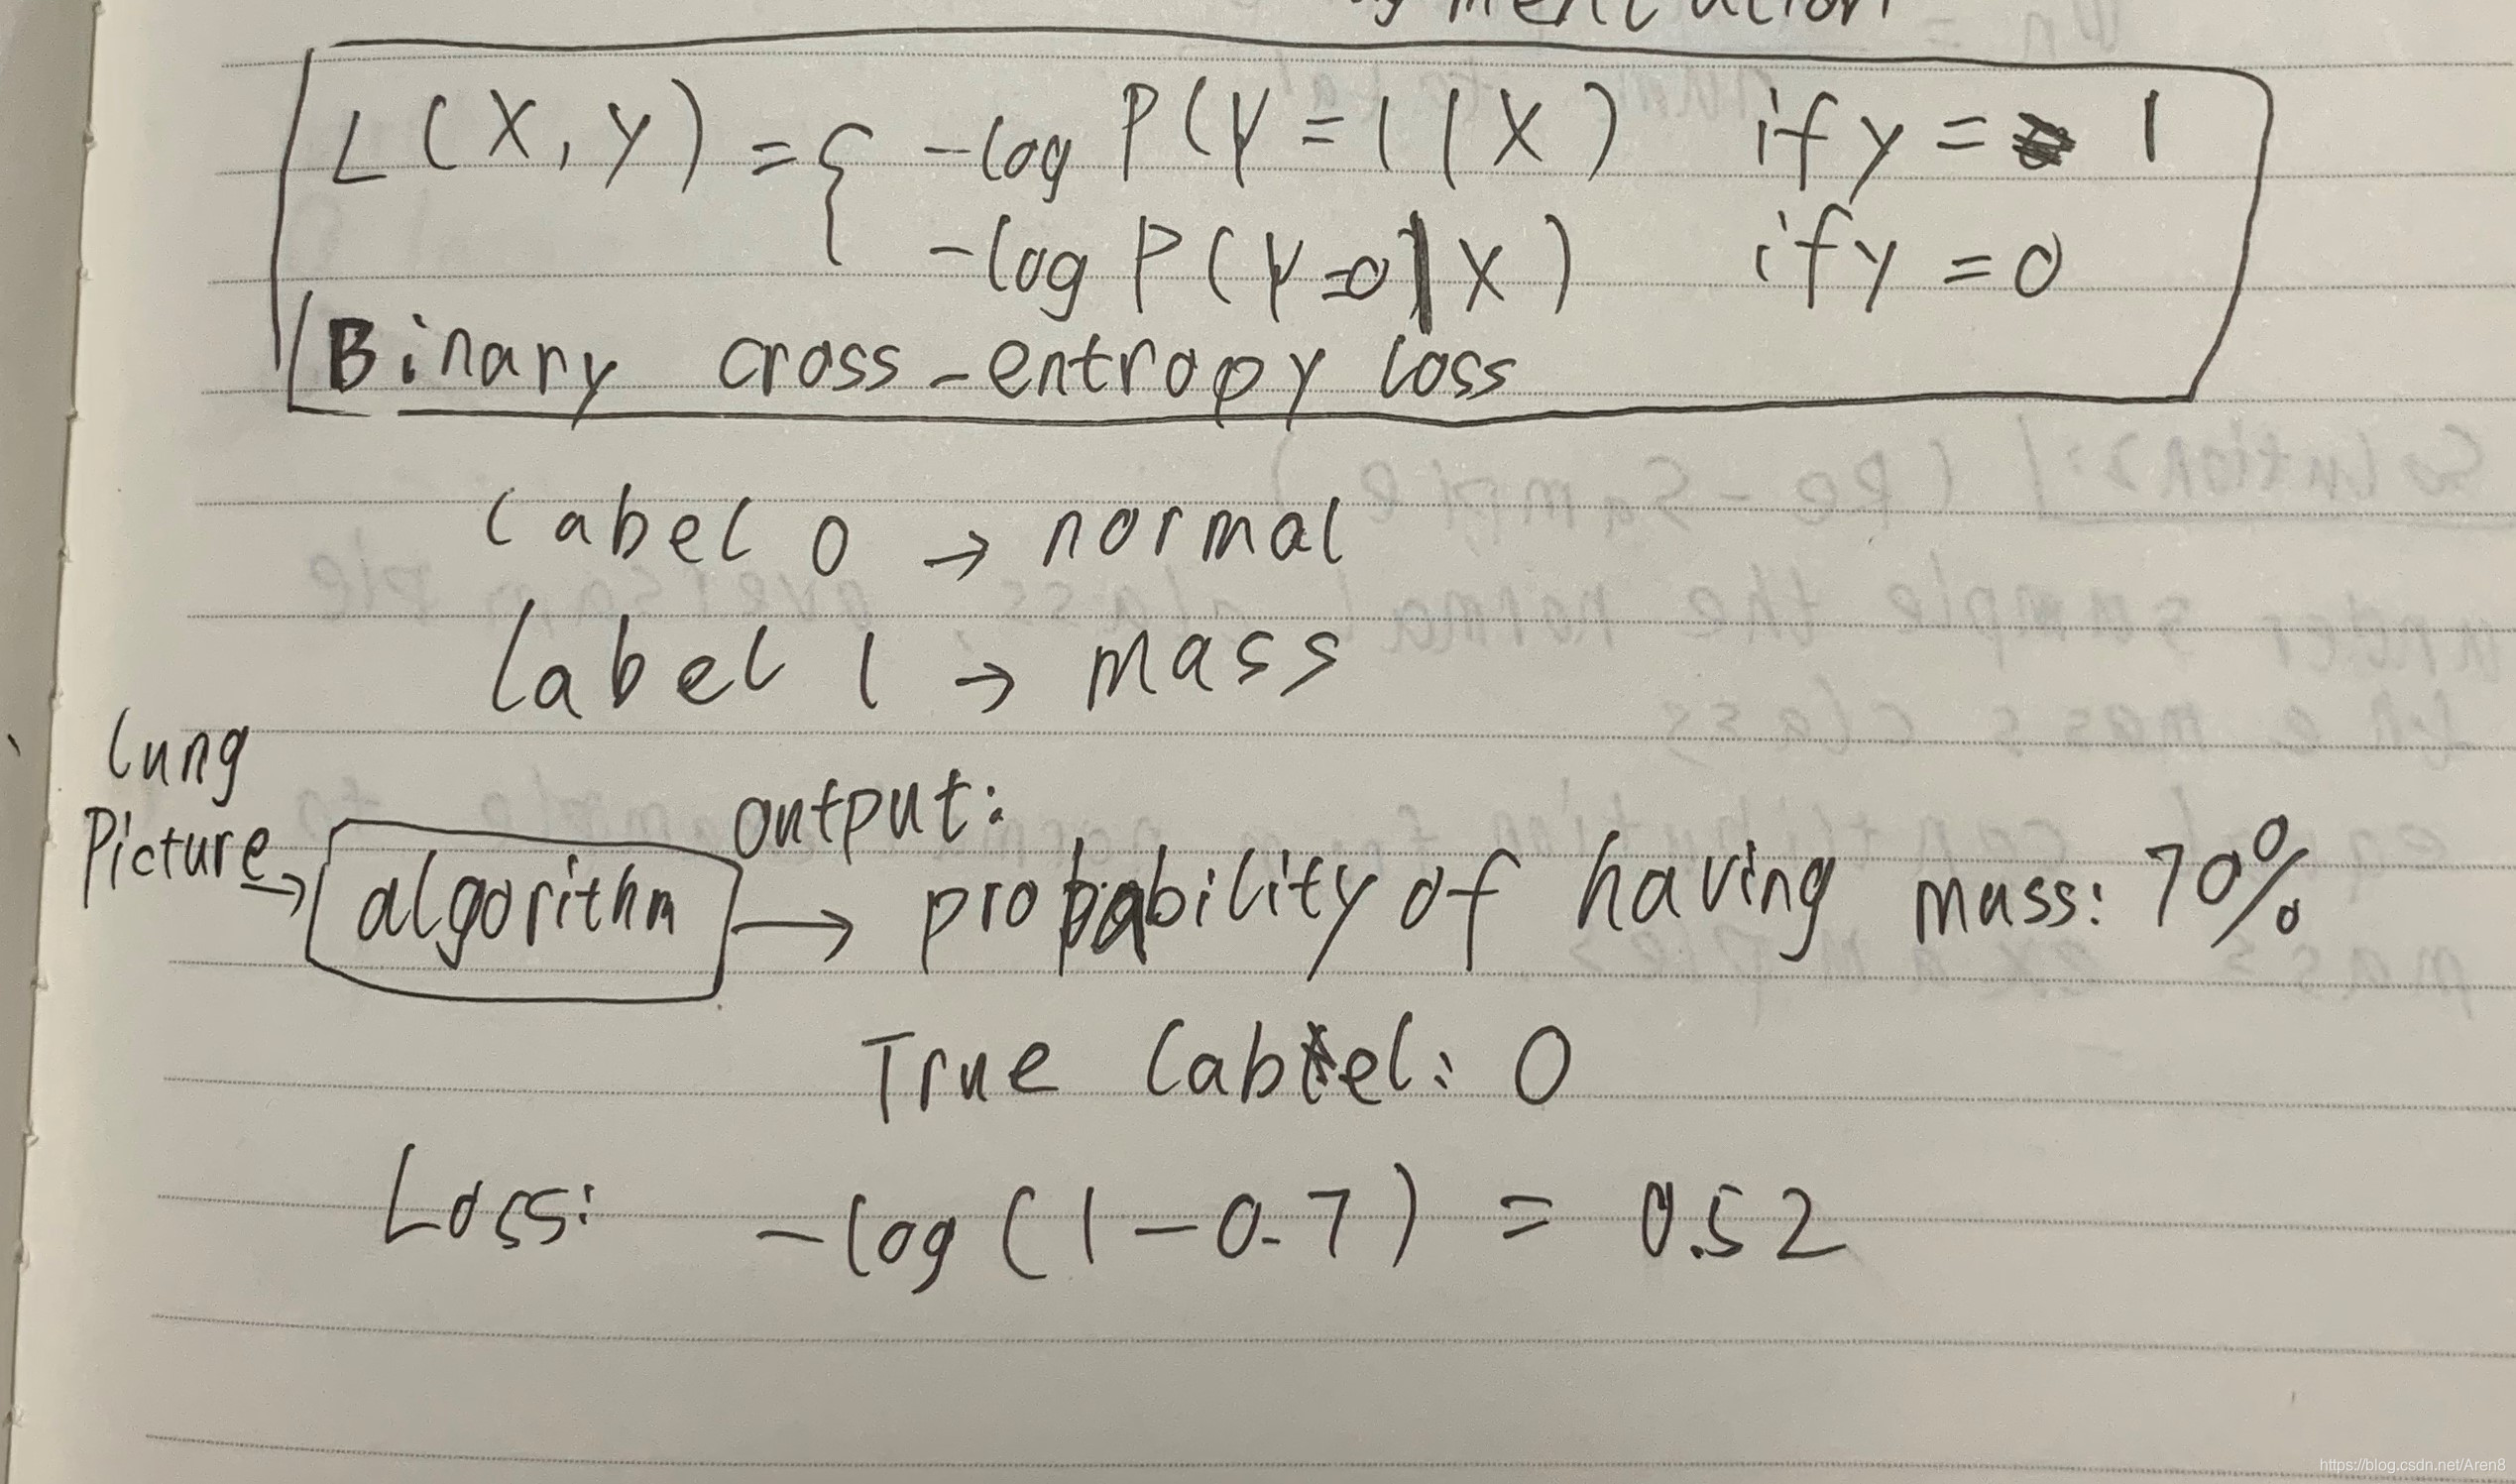 L(X, y) = { -log P(Y=1|X) if y = 1
-log P(Y=0|X) if y = 0
Binary cross-entropy loss
label 0 → normal
label 1 → mass
lung
Picture → algorithm → output:
probability of having mass: 70%
True label: 0
Loss: -log(1-0.7) = 0.52
https://blog.csdn.net/Aren8